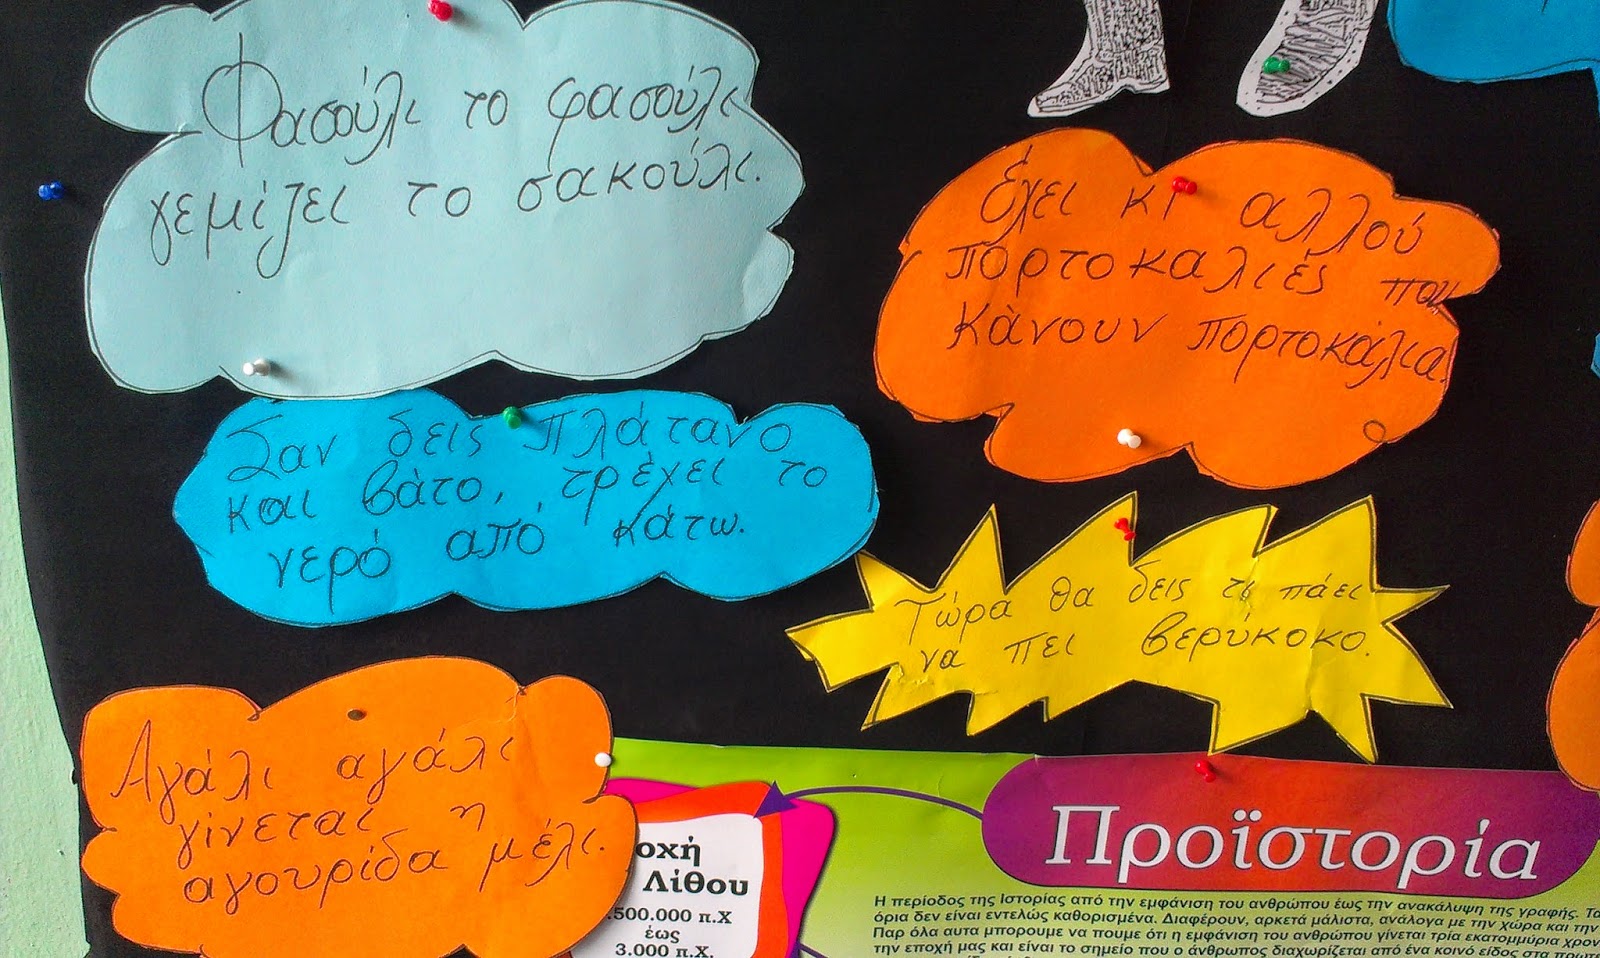 Φασούλι το φασούλι
γεμίζει το σακούλι.
Έχει κι αλλού
πορτοκαλιές που
κάνουν πορτοκάλια.
Σαν δεις πλάτανο
και βάτο, τρέχει το
νερό από κάτω.
Τώρα θα δεις τι πάει
να πει βερύκοκο.
Αγάλι αγάλι
γίνεται η
αγουρίδα μέλι.
οχή
Λίθου
.500.000 π.Χ
έως
3.000 π.Χ.
Προϊστορία
Η περίοδος της Ιστορίας από την εμφάνιση του ανθρώπου έως την ανακάλυψη της γραφής. Τα
όρια δεν είναι εντελώς καθορισμένα. Διαφέρουν, αρκετά μάλιστα, ανάλογα με την χώρα και την
Παρ όλα αυτα μπορουμε να πουμε ότι η εμφάνιση του ανθρώπου γίνεται τρία εκατομμύρια χρον
την εποχή μας και είναι το σημείο που ο άνθρωπος διαχωρίζεται από ένα κοινό είδος στα πρωτε